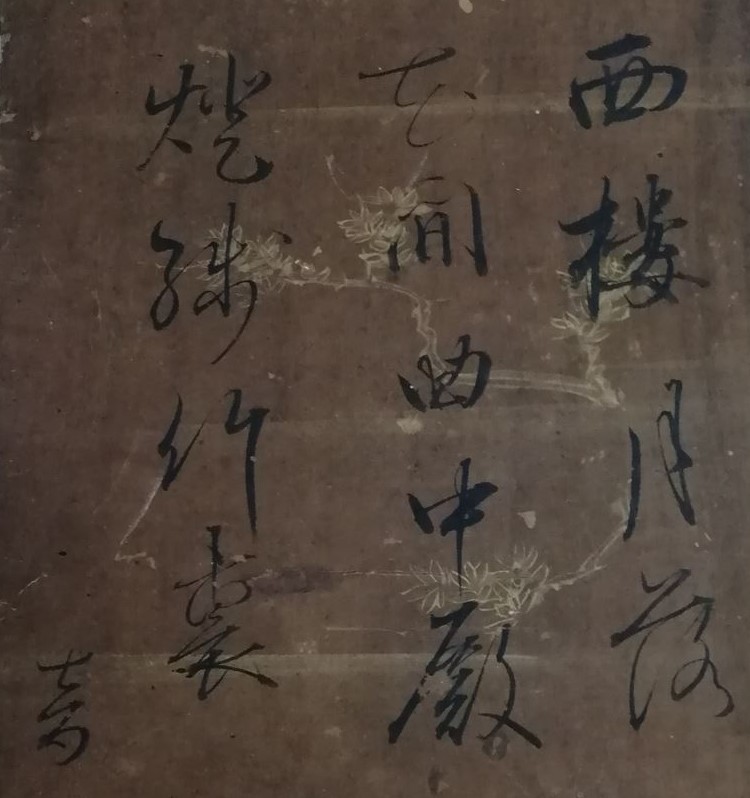 西樓月落
花間曲中殿
燈殘竹裏
音